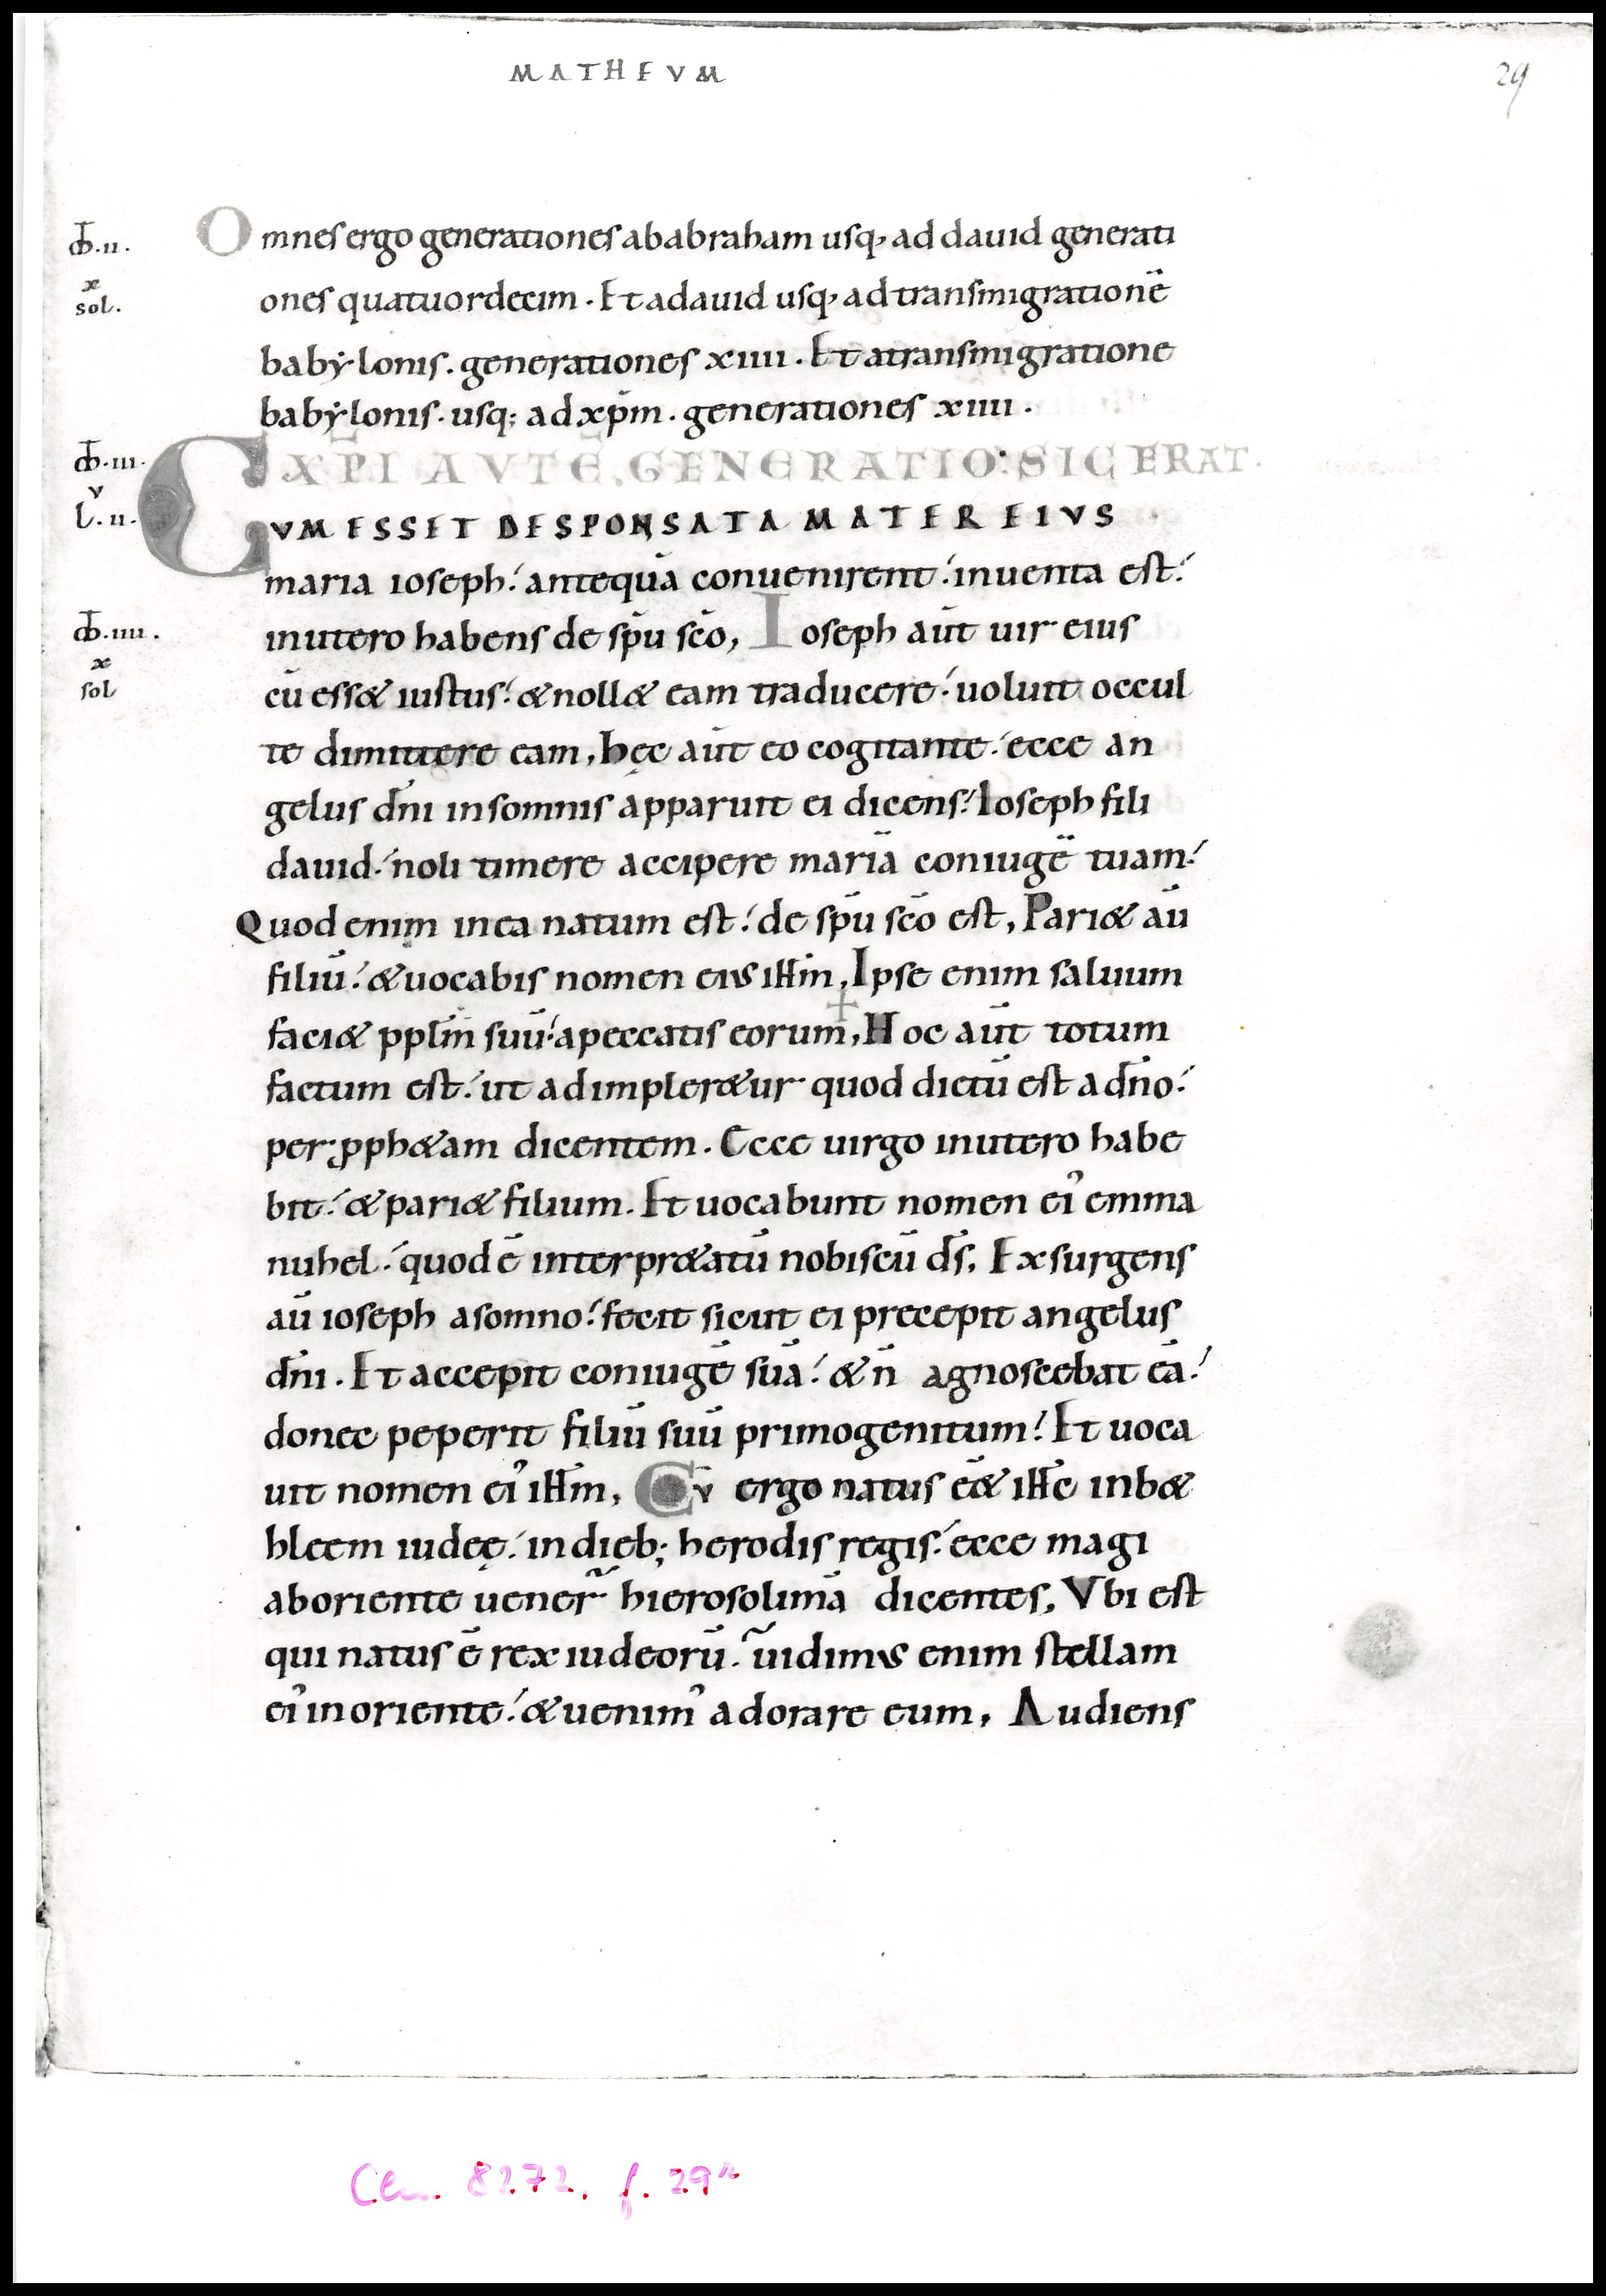 MATHEVM
29
Omnes ergo generationes ab abraham usq; ad dauid generati
ones quatuordecim. Et a dauid usq; ad transmigrationē
babẏlonis. generationes xiiii. Et a transmigratione
babẏlonis. usq; ad xp̄m. generationes xiiii.
XPI AVTĒ GENERATIO: SIC ERAT.
CVM ESSET DESPONSATA MATER EIVS
maria ioseph: antequā conuenirent: inuenta est:
in utero habens de sp̄u sc̄o, Ioseph aūt uir eius
cū esset iustus: & nollet eam traducere: uoluit occul
te dimittere eam, hęc aūt eo cogitante: ecce an
gelus dn̄i in somnis apparuit ei dicens: Ioseph fili
dauid: noli timere accipere mariā coniugē tuam:
Quod enim in ea natum est: de sp̄u sc̄o est, Pariet aū
filiū: & uocabis nomen eius ih̄m, Ipse enim saluum
faciet ppl̄m suū: a peccatis eorum, Hoc aūt totum
factum est: ut adimpleretur quod dictū est a dn̄o:
per pphetam dicentem. Ecce uirgo in utero habe
bit: & pariet filium. Et uocabunt nomen ei᾽ emma
nuhel: quod ē interpretatū nobiscū d̄s. Exsurgens
aū ioseph a somno: fecit sicut ei precepit angelus
dn̄i. Et accepit coniugē suā: & n̄ agnoscebat eā:
donec peperit filiū suū primogenitum: Et uoca
uit nomen ei᾽ ih̄m, Cū ergo natus eēt ih̄c in bet
hleem iudeę: in dieb; herodis regis: ecce magi
ab oriente uener̄ hierosolimā dicentes, Vbi est
qui natus ē rex iudeorū. uidimus enim stellam
ei᾽ in oriente: & uenim᾽ adorare eum, Audiens
.ii.
x
sol.
.iii.
v
L.ii.
.iiii.
x
sol
+
Clm. 8272, f. 29r